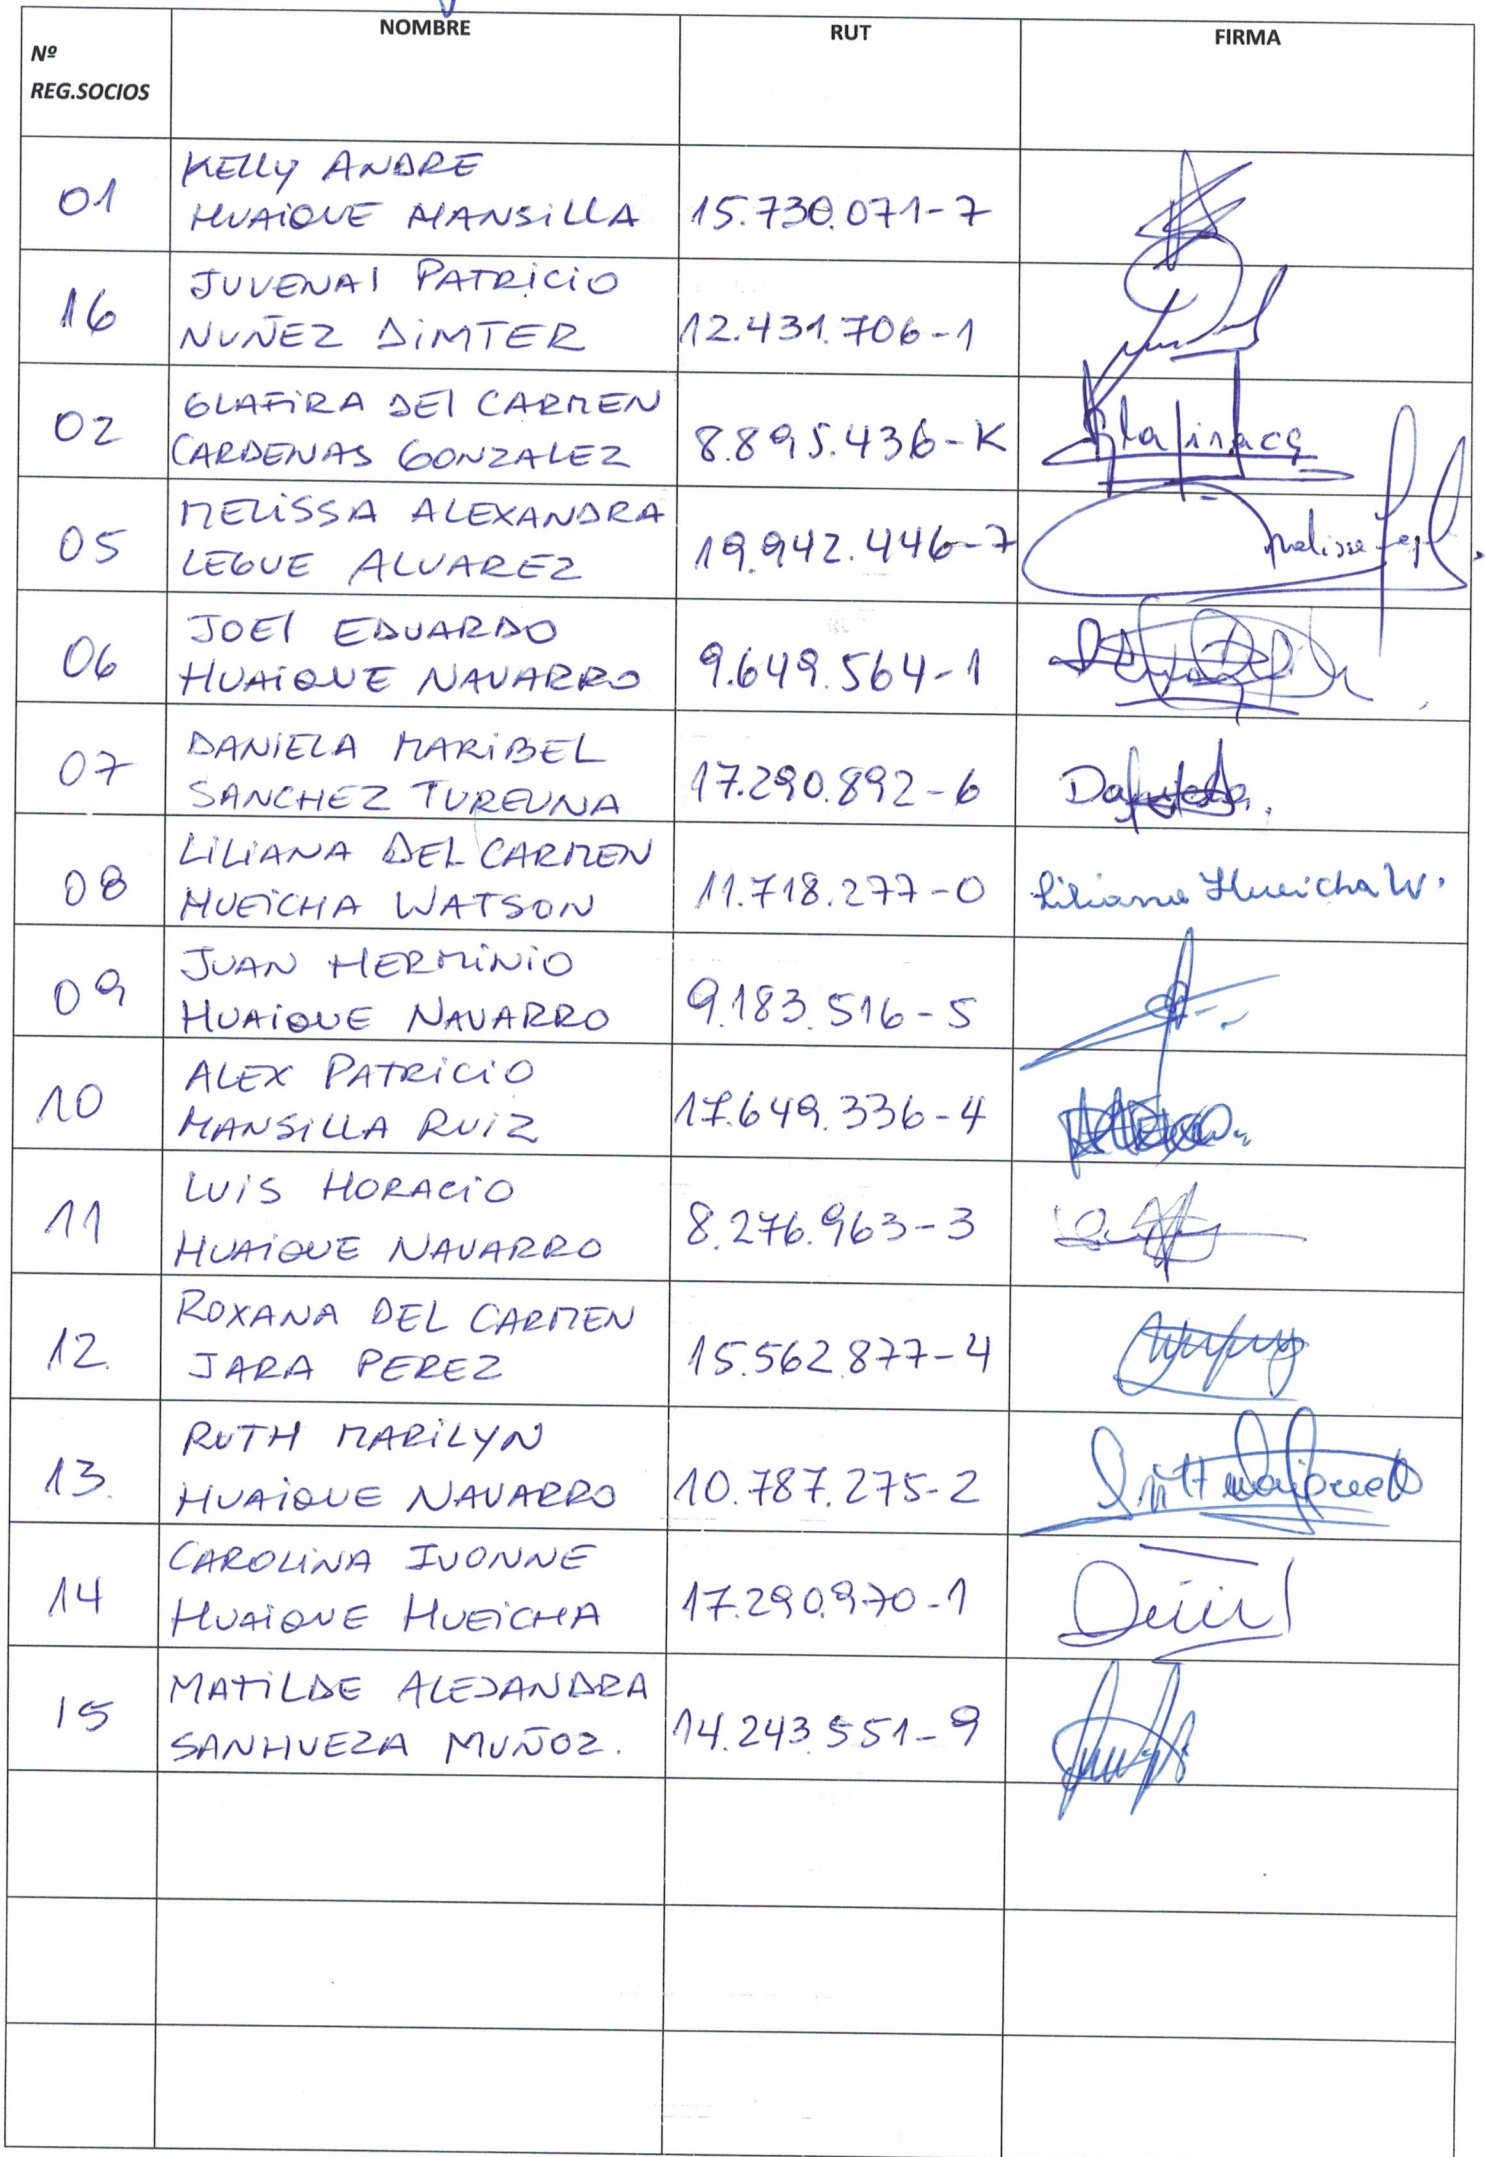 Nº
REG.SOCIOS
NOMBRE
RUT
FIRMA
01
KELLY ANDRE
HUAIQUE MANSILLA
15.730.071-7
16
JUVENAL PATRICIO
NUÑEZ DIMTER
12.431.706-1
02
GLAFIRA DEL CARMEN
CARDENAS GONZALEZ
8.895.436-K
05
MELISSA ALEXANDRA
LEGUE ALVAREZ
19.942.446-7
06
JOEL EDUARDO
HUAIQUE NAVARRO
9.649.564-1
07
DANIELA MARIBEL
SANCHEZ TUREUNA
17.290.892-6
08
LILIANA DEL CARMEN
HUEICHA WATSON
11.718.277-0
Liliana Hueicha W.
09
JUAN HERMINIO
HUAIQUE NAVARRO
9.183.516-5
10
ALEX PATRICIO
MANSILLA RUIZ
17.649.336-4
11
LUIS HORACIO
HUAIQUE NAVARRO
8.276.963-3
12.
ROXANA DEL CARMEN
JARA PEREZ
15.562.877-4
13.
RUTH MARILYN
HUAIQUE NAVARRO
10.787.275-2
14
CAROLINA IVONNE
HUAIQUE HUEICHA
17.290.970-1
15
MATILDE ALEJANDRA
SANHUEZA MUÑOZ.
14.243.551-9